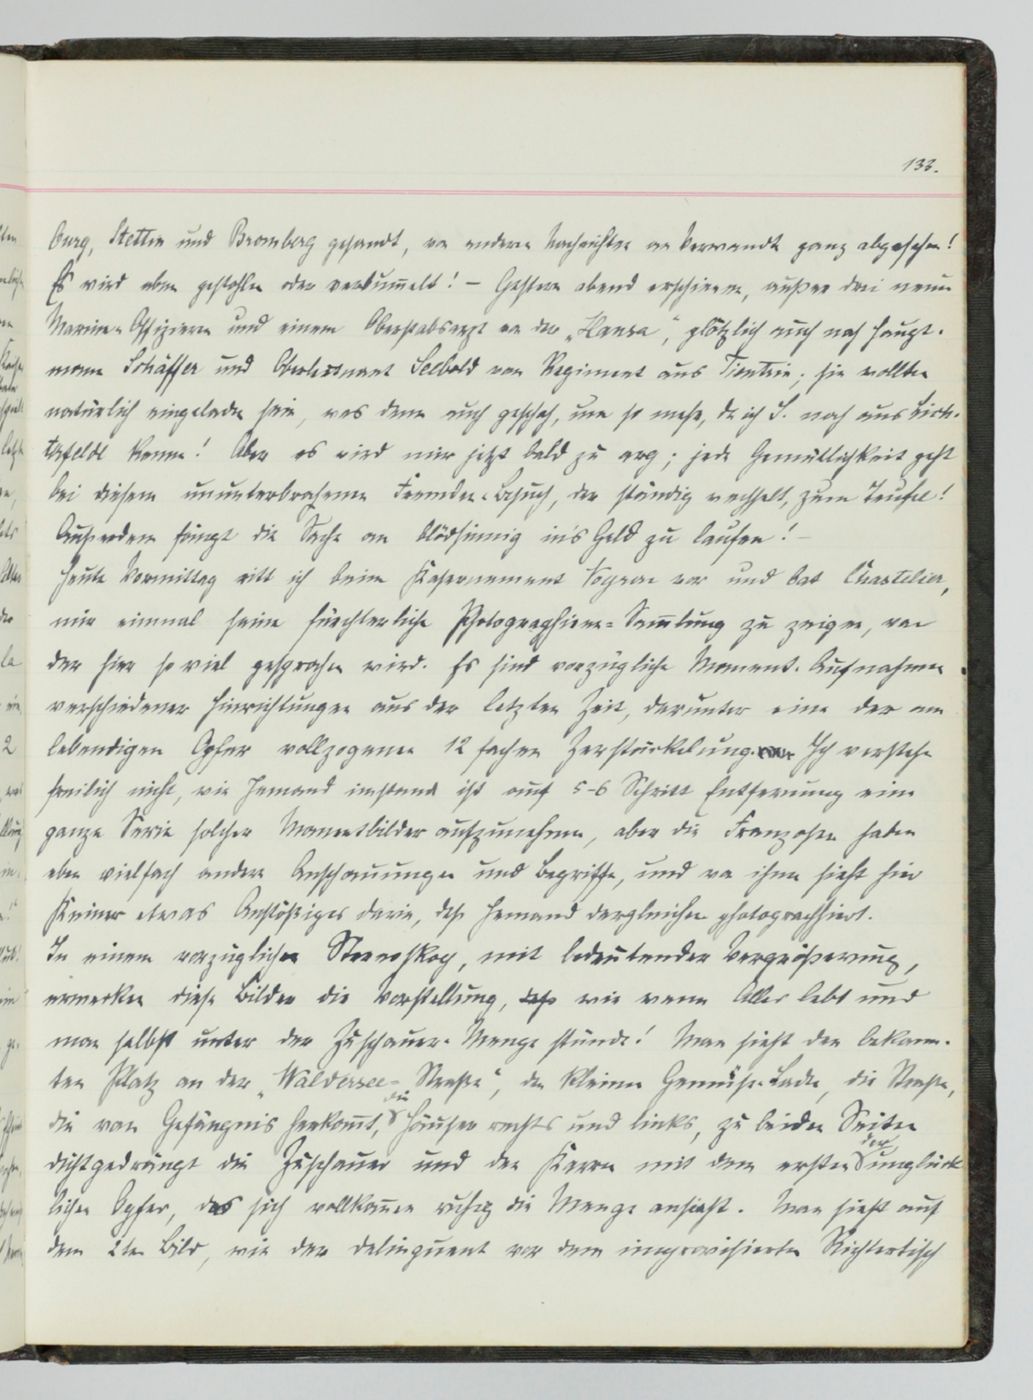 133.
burg, Stettin und Bromberg gesandt, von anderen Nachrichten an Verwandte ganz abgesehen!
Es wird eben gestohlen oder verbummelt! – Gestern abend erschienen, außer drei neuen
Marine-Offizieren und einem Oberstabsarzt von der „Hansa“, plötzlich auch noch Haupt-
mann Schäffer und Oberleutnant Seebold vom Regiment aus Tientsin; sie wollten
natürlich eingeladen sein, was denn auch geschah, um so mehr, da ich S. noch aus Lich-
terfelde kenne! Aber es wird mir jetzt bald zu arg; jede Gemütlichkeit geht
bei diesem ununterbrochenen Fremden-Besuch, der ständig wechselt, zum Teufel!
Außerdem fängt die Sache an blödsinnig in's Geld zu laufen! –
Heute Vormittag ritt ich beim Kasernement Voyron vor und bat Chastelier,
mir einmal seine fürchterliche Photographieen-Sammlung zu zeigen, von
der hier so viel gesprochen wird. Es sind vorzügliche Moment-Aufnahmen
verschiedener Hinrichtungen aus der letzten Zeit, darunter eine der am
lebendigen Opfer vollzogenen 12 fachen Zerstückelung. Ich verstehe
freilich nicht, wie Jemand imstand ist auf 5-6 Schritt Entfernung eine
ganze Serie solcher Momentbilder aufzunehmen, aber die Franzosen haben
eben vielfach andere Anschauungen und Begriffe, und von ihnen sieht hier
Keiner etwas Anstößiges darin, daß Jemand dergleichen photographiert.
In einem vorzüglichen Stereoskop, mit bedeutender Vergrößerung,
erwecken diese Bilder die Vorstellung, wie wenn Alles lebt und
man selbst unter der Zuschauer-Menge stünde! Man sieht den bekann-
ten Platz an der „Waldersee-Straße“, den kleinen Gemüse-Laden, die Straße,
die vom Gefängnis herkommt, die Häuser rechts und links, zu beiden Seiten
dichtgedrängt die Zuschauer und den Karren mit dem ersten der unglück-
lichen Opfer, das sich vollkommen ruhig die Menge ansieht. Man sieht auf
dem 2ten Bild, wie der Delinquent vor dem improvisierten Richtertisch